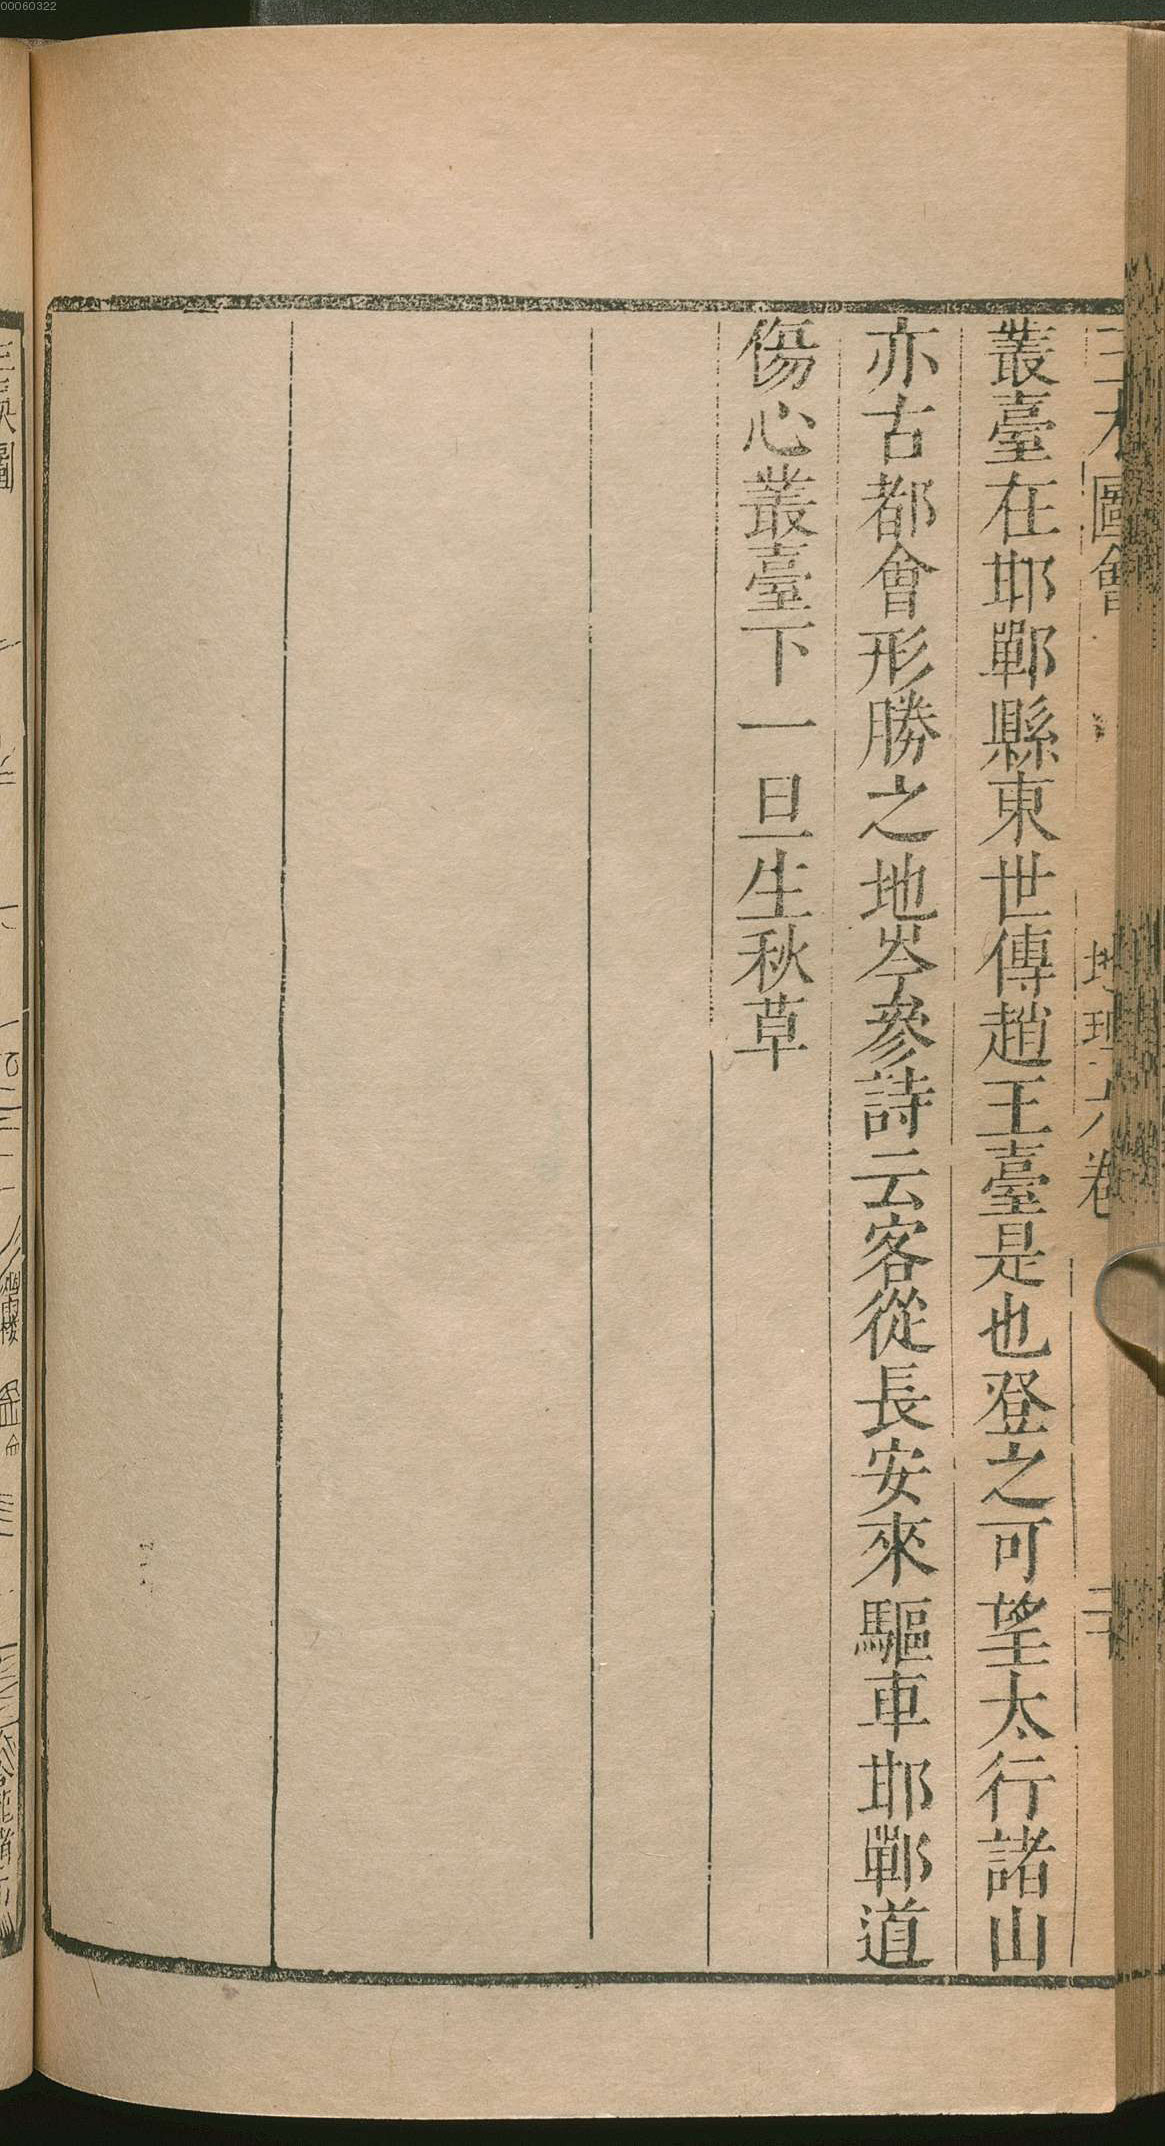 00060322
三才圖會 地理六卷
叢臺在邯鄲縣東世傳趙王臺是也登之可望太行諸山
亦古都會形勝之地岑參詩云客從長安來驅車邯鄲道
傷心叢臺下一旦生秋草